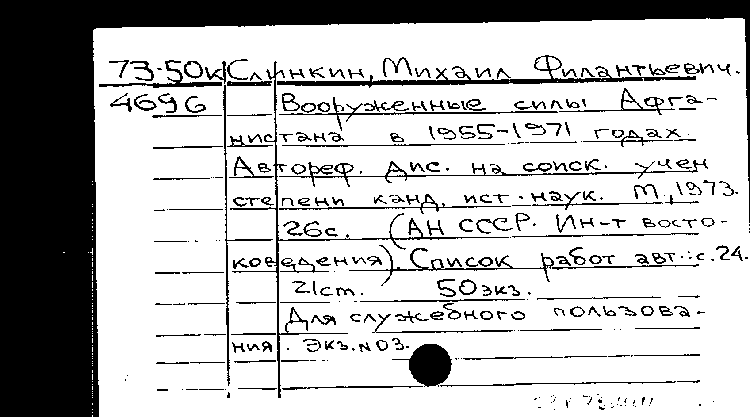 73-50к Слинкин, Михаил Филантьевич.
4696 Вооруженные силы Афга-
нистана в 1955-1971 годах.
Автореф. дис. на соиск. учен
степени канд. ист. наук. М., 1973.
26с. (АН СССР. Ин-т восто-
коведения). Список работ авт.: с. 24.
21ст. 50экз.
Для служебного пользова-
ния. Экз. N 03.